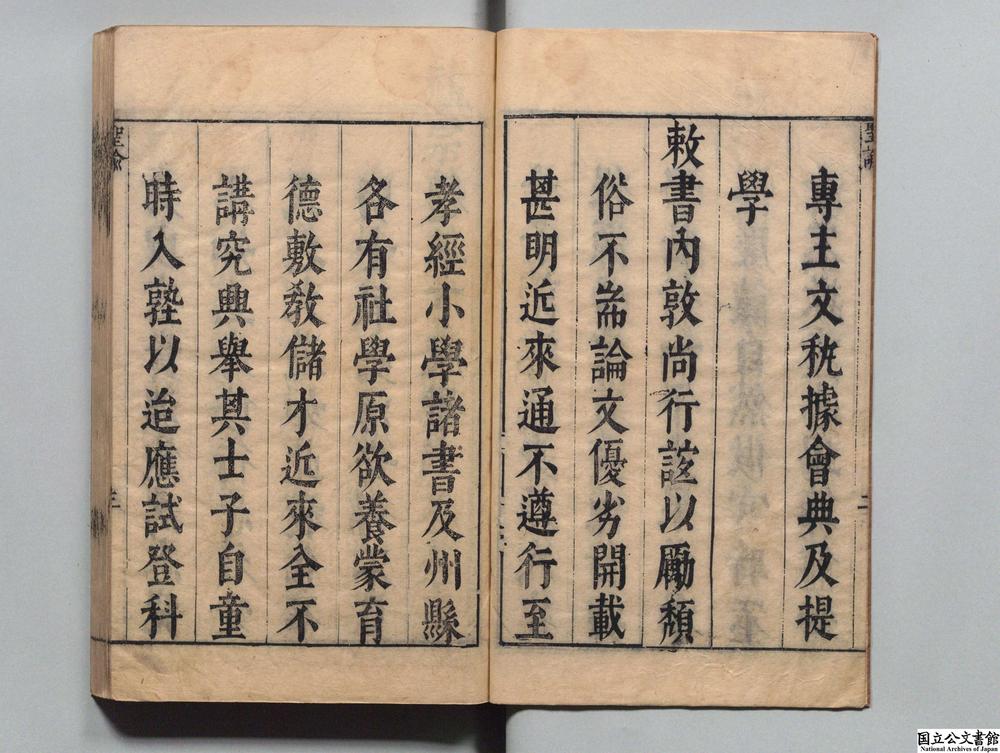 聖諭
專主文秇據會典及提
學
敕書內敦尚行誼以勵頹
俗不耑論文優劣開載
甚明近來通不遵行至
二
孝經小學諸書及州縣
各有社學原欲養蒙育
德敷敎儲才近來全不
講究興舉其士子自童
時入塾以迨應試登科
聖諭
三
国立公文書館
National Archives of Japan